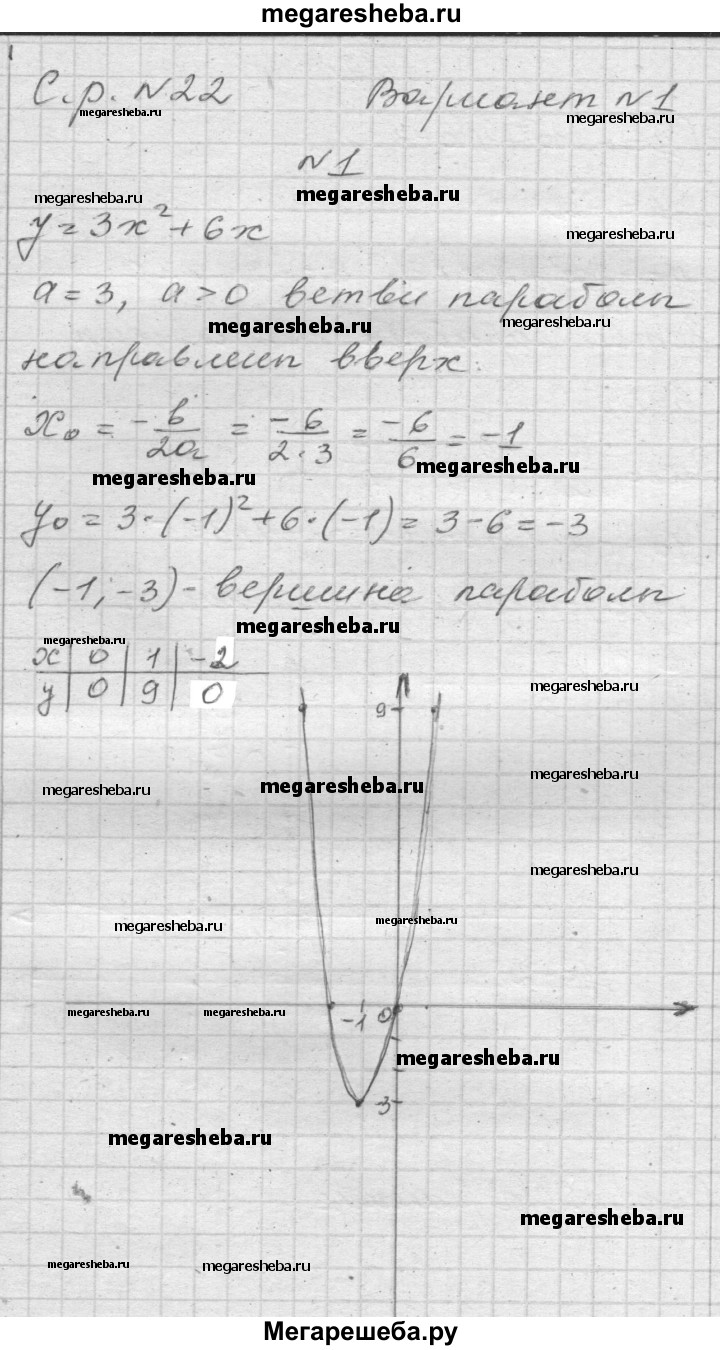 megaresheba.ru
С.р. №22 Вариант №1
megaresheba.ru megaresheba.ru
№1
megaresheba.ru megaresheba.ru
y = 3x² + 6x megaresheba.ru
a = 3, a > 0 ветви параболы
megaresheba.ru megaresheba.ru
направлен вверх.
x₀ = -b/2a = -6/2·3 = -6/6 = -1
megaresheba.ru megaresheba.ru
y₀ = 3·(-1)² + 6·(-1) = 3 - 6 = -3
(-1; -3) - вершина параболы
megaresheba.ru megaresheba.ru
x | 0 | 1 | -2
y | 0 | 9 | 0
megaresheba.ru
9
megaresheba.ru megaresheba.ru megaresheba.ru
megaresheba.ru
megaresheba.ru megaresheba.ru
megaresheba.ru megaresheba.ru -1 0
megaresheba.ru
-3
megaresheba.ru
megaresheba.ru
megaresheba.ru megaresheba.ru
Мегарешеба.ру